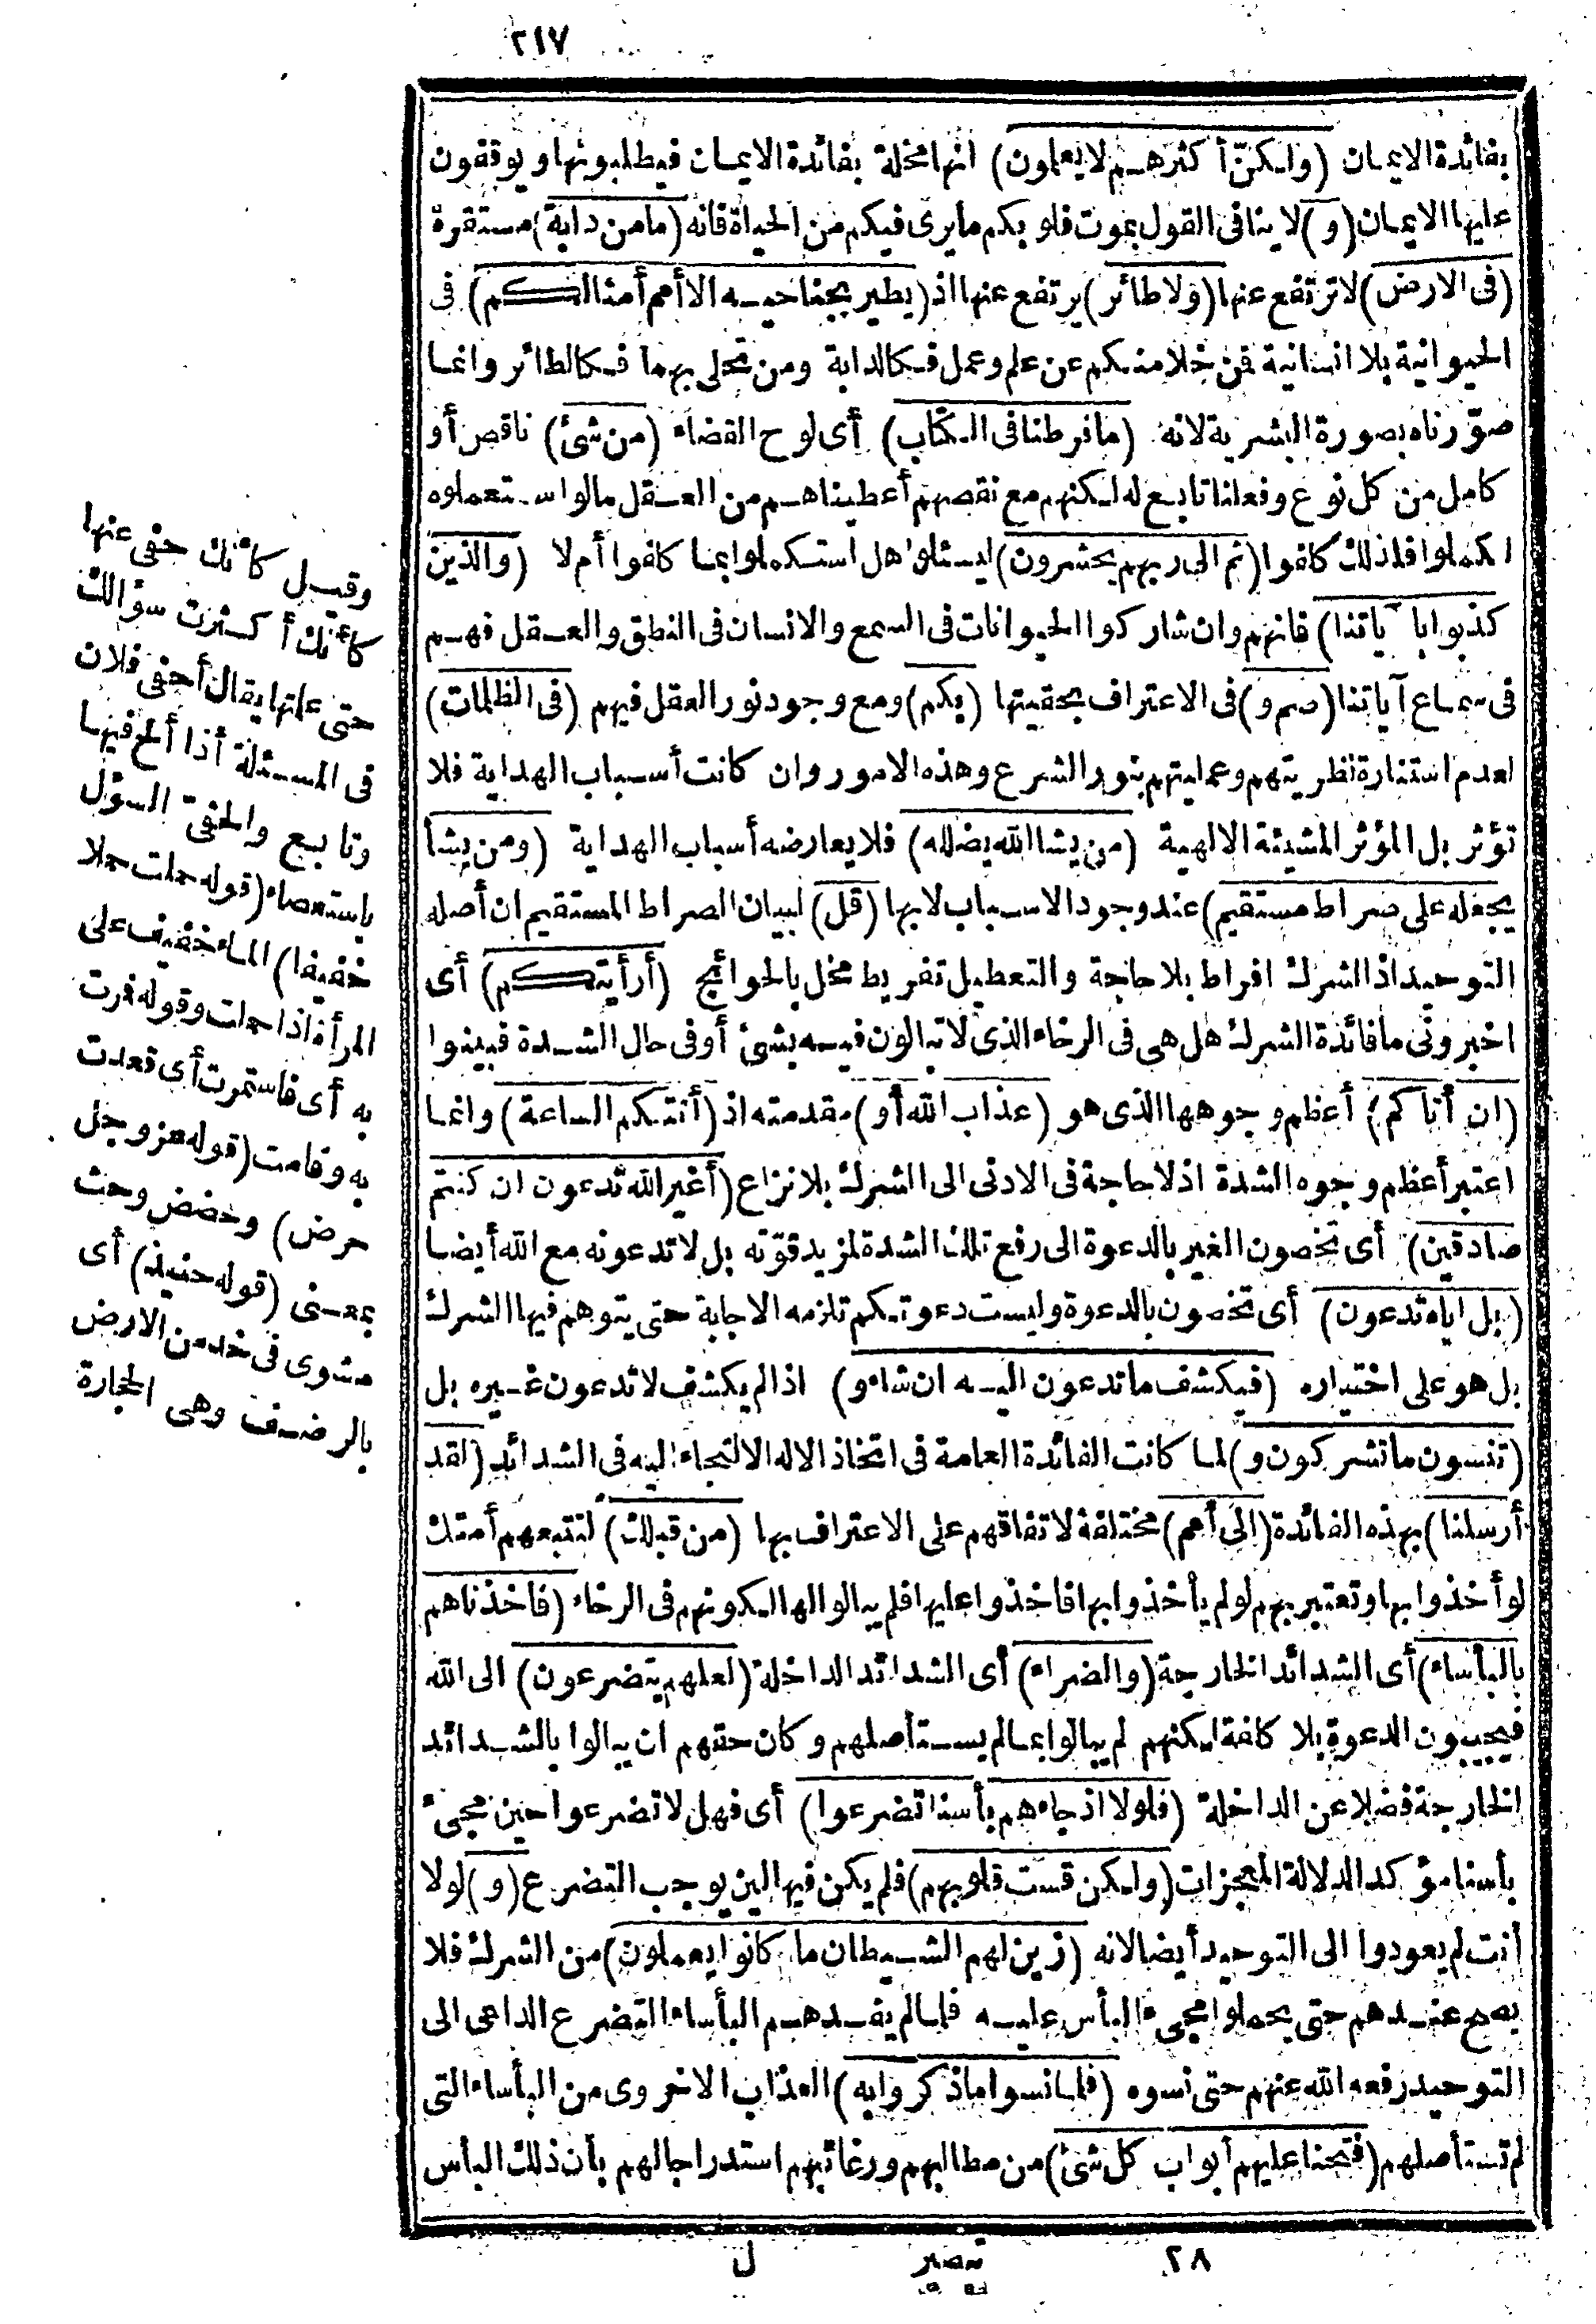 ٢١٧
بفائدة الايمان (ولكنّ أكثرهم لا يعلمون) انها مخلة بفائدة الايمان فيطلبونها ويوقفون
عليها الايمان (و) لا ينافى القول بموت قلوبكم ما يرى فيكم من الحياة فانه (ما من دابة) مستقرة
(فى الارض) لا ترتفع عنها (ولا طائر) يرتفع عنها اذ (يطير بجناحيه الا أمم أمثالكم) فى
الحيوانية بلا انسانية فمن خلا منكم عن علم وعمل فكالدابة ومن تحلى بهما فكالطائر وانما
صوّرناه بصورة البشرية لانه (ما فرطنا فى الكتاب) أى لوح القضاء (من شئ) ناقص أو
كامل من كل نوع وفعلنا تابع له لكنهم مع نقصهم أعطيناهم من العقل ما لو استعملوه
لكملوا فلذلك كلفوا (ثم الى ربهم يحشرون) ليسئلوا هل استكملوا بما كلفوا أم لا (والذين
كذبوا بآياتنا) فانهم وان شاركوا الحيوانات فى السمع والانسان فى النطق والعقل فهم
فى سماع آياتنا (صم و) فى الاعتراف بحقيتها (بكم) ومع وجود نور العقل فيهم (فى الظلمات)
لعدم استنارة نظريتهم وعمليتهم بنور الشرع وهذه الامور وان كانت أسباب الهداية فلا
تؤثر بل المؤثر المشيئة الالهية (من يشا الله يضلله) فلا يعارضه أسباب الهداية (ومن يشأ
يجعله على صراط مستقيم) عند وجود الاسباب لا بها (قل) لبيان الصراط المستقيم ان أصله
التوحيد اذ الشرك افراط بلا حاجة والتعطيل تفريط مخل بالحوائج (أرأيتكم) أى
اخبرونى ما فائدة الشرك هل هى فى الرخاء الذى لا تبالون فيه بشئ أو فى حال الشدة فبينوا
(ان أتاكم) أعظم وجوهها الذى هو (عذاب الله أو) مقدمته اذ (أتتكم الساعة) وانما
اعتبر أعظم وجوه الشدة اذ لا حاجة فى الادنى الى الشرك بلا نزاع (أغير الله تدعون ان كنتم
صادقين) أى تخصون الغير بالدعوة الى رفع تلك الشدة لمزيد قوّته بل لا تدعونه مع الله أيضا
(بل اياه تدعون) أى تخصون بالدعوة وليست دعوتكم تلزمه الاجابة حتى يتوهم فيها الشرك
بل هو على اختياره (فيكشف ما تدعون اليه ان شاء و) اذ الم يكشف لا تدعون غيره بل
(تنسون ما تشركون و) لما كانت الفائدة العامة فى اتخاذ الاله الالتجاء اليه فى الشدائد (لقد
أرسلنا) بهذه الفائدة (الى أمم) مختلفة لاتفاقهم على الاعتراف بها (من قبلك) لتتبعهم أمتك
لو أخذوا بها وتعتبر بهم لو لم يأخذوا بها فاخذوا عليها فلم يبالوا لها لكونهم فى الرخاء (فاخذناهم
بالبأساء) أى الشدائد الخارجة (والضراء) أى الشدائد الداخلة (لعلهم يتضرعون) الى الله
فيجيبون الدعوة بلا كلفة لكنهم لم يبالوا بما لم يستأصلهم وكان حقهم ان يبالوا بالشدائد
الخارجة فضلا عن الداخلة (فلولا اذ جاءهم بأسنا تضرعوا) أى فهل لا تضرعوا حين مجىء
بأسنا مؤكد الدلالة المعجزات (ولكن قست قلوبهم) فلم يكن فيها لين يوجب التضرع (و) لولا
أنت لم يعودوا الى التوحيد أيضا لانه (زين لهم الشيطان ما كانوا يعملون) من الشرك فلا
يصح عندهم حتى يحملوا مجىء البأس عليه فلما لم يفدهم البأساء التضرع الداعى الى
التوحيد رفعه الله عنهم حتى نسوه (فلما نسوا ما ذكروا به) العذاب الاخروى من البأساء التى
لم تستأصلهم (فتحنا عليهم أبواب كل شئ) من مطالبهم ورغائبهم استدراجا لهم بأن ذلك البأس
وقيل كأنك حفى عنها
كأنك أكثرت سؤالك
حتى علمتها يقال أحفى فلان
فى المسئلة اذا ألح فيها
وتابع والحفىّ السؤل
باستقصاء (قوله حملت حملا
خفيفا) الماء خفيف على
المرأة اذا حملت وقوله فمرت
به أى فاستمرت أى قعدت
به وقامت (قوله عز وجل
حرض) وحضض وحث
بمعنى (قوله حنيذ) أى
مشوى فى خد من الارض
بالرضف وهى الحجارة
٢٨ تبصير ل